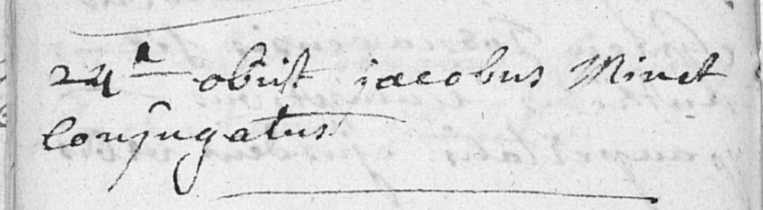 24ᵃ obiit jacobus Minet
Conjugatus